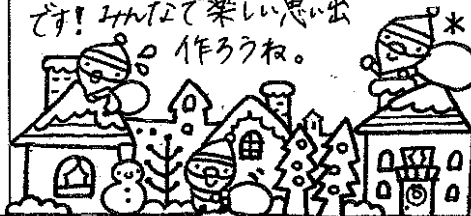 です！みんなで楽しい思い出
作ろうね。